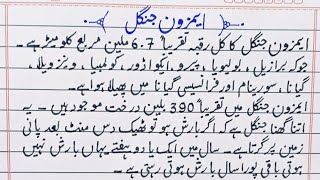 ایمزون جنگل
ایمزون جنگل کا کل رقبہ تقریباً 6.7 ملین مربع کلومیٹر ہے ۔
جو کہ برازیل ، بولیویا ، پیرو ، ایکواڈور ، کولمبیا ، وینزویلا ،
گیانا ، سورینام اور فرانسیسی گیانا میں پھیلا ہوا ہے ۔
ایمزون جنگل میں تقریباً 390 بلین درخت موجود ہیں ۔ یہ
اتنا گھنا جنگل ہے کہ اگر بارش ہو تو ٹھیک دس منٹ بعد پانی
زمین پر گرتا ہے ۔ سال میں ایک یا دو ہفتے یہاں بارش نہیں
ہوتی باقی پورا سال بارش ہوتی رہتی ہے ۔